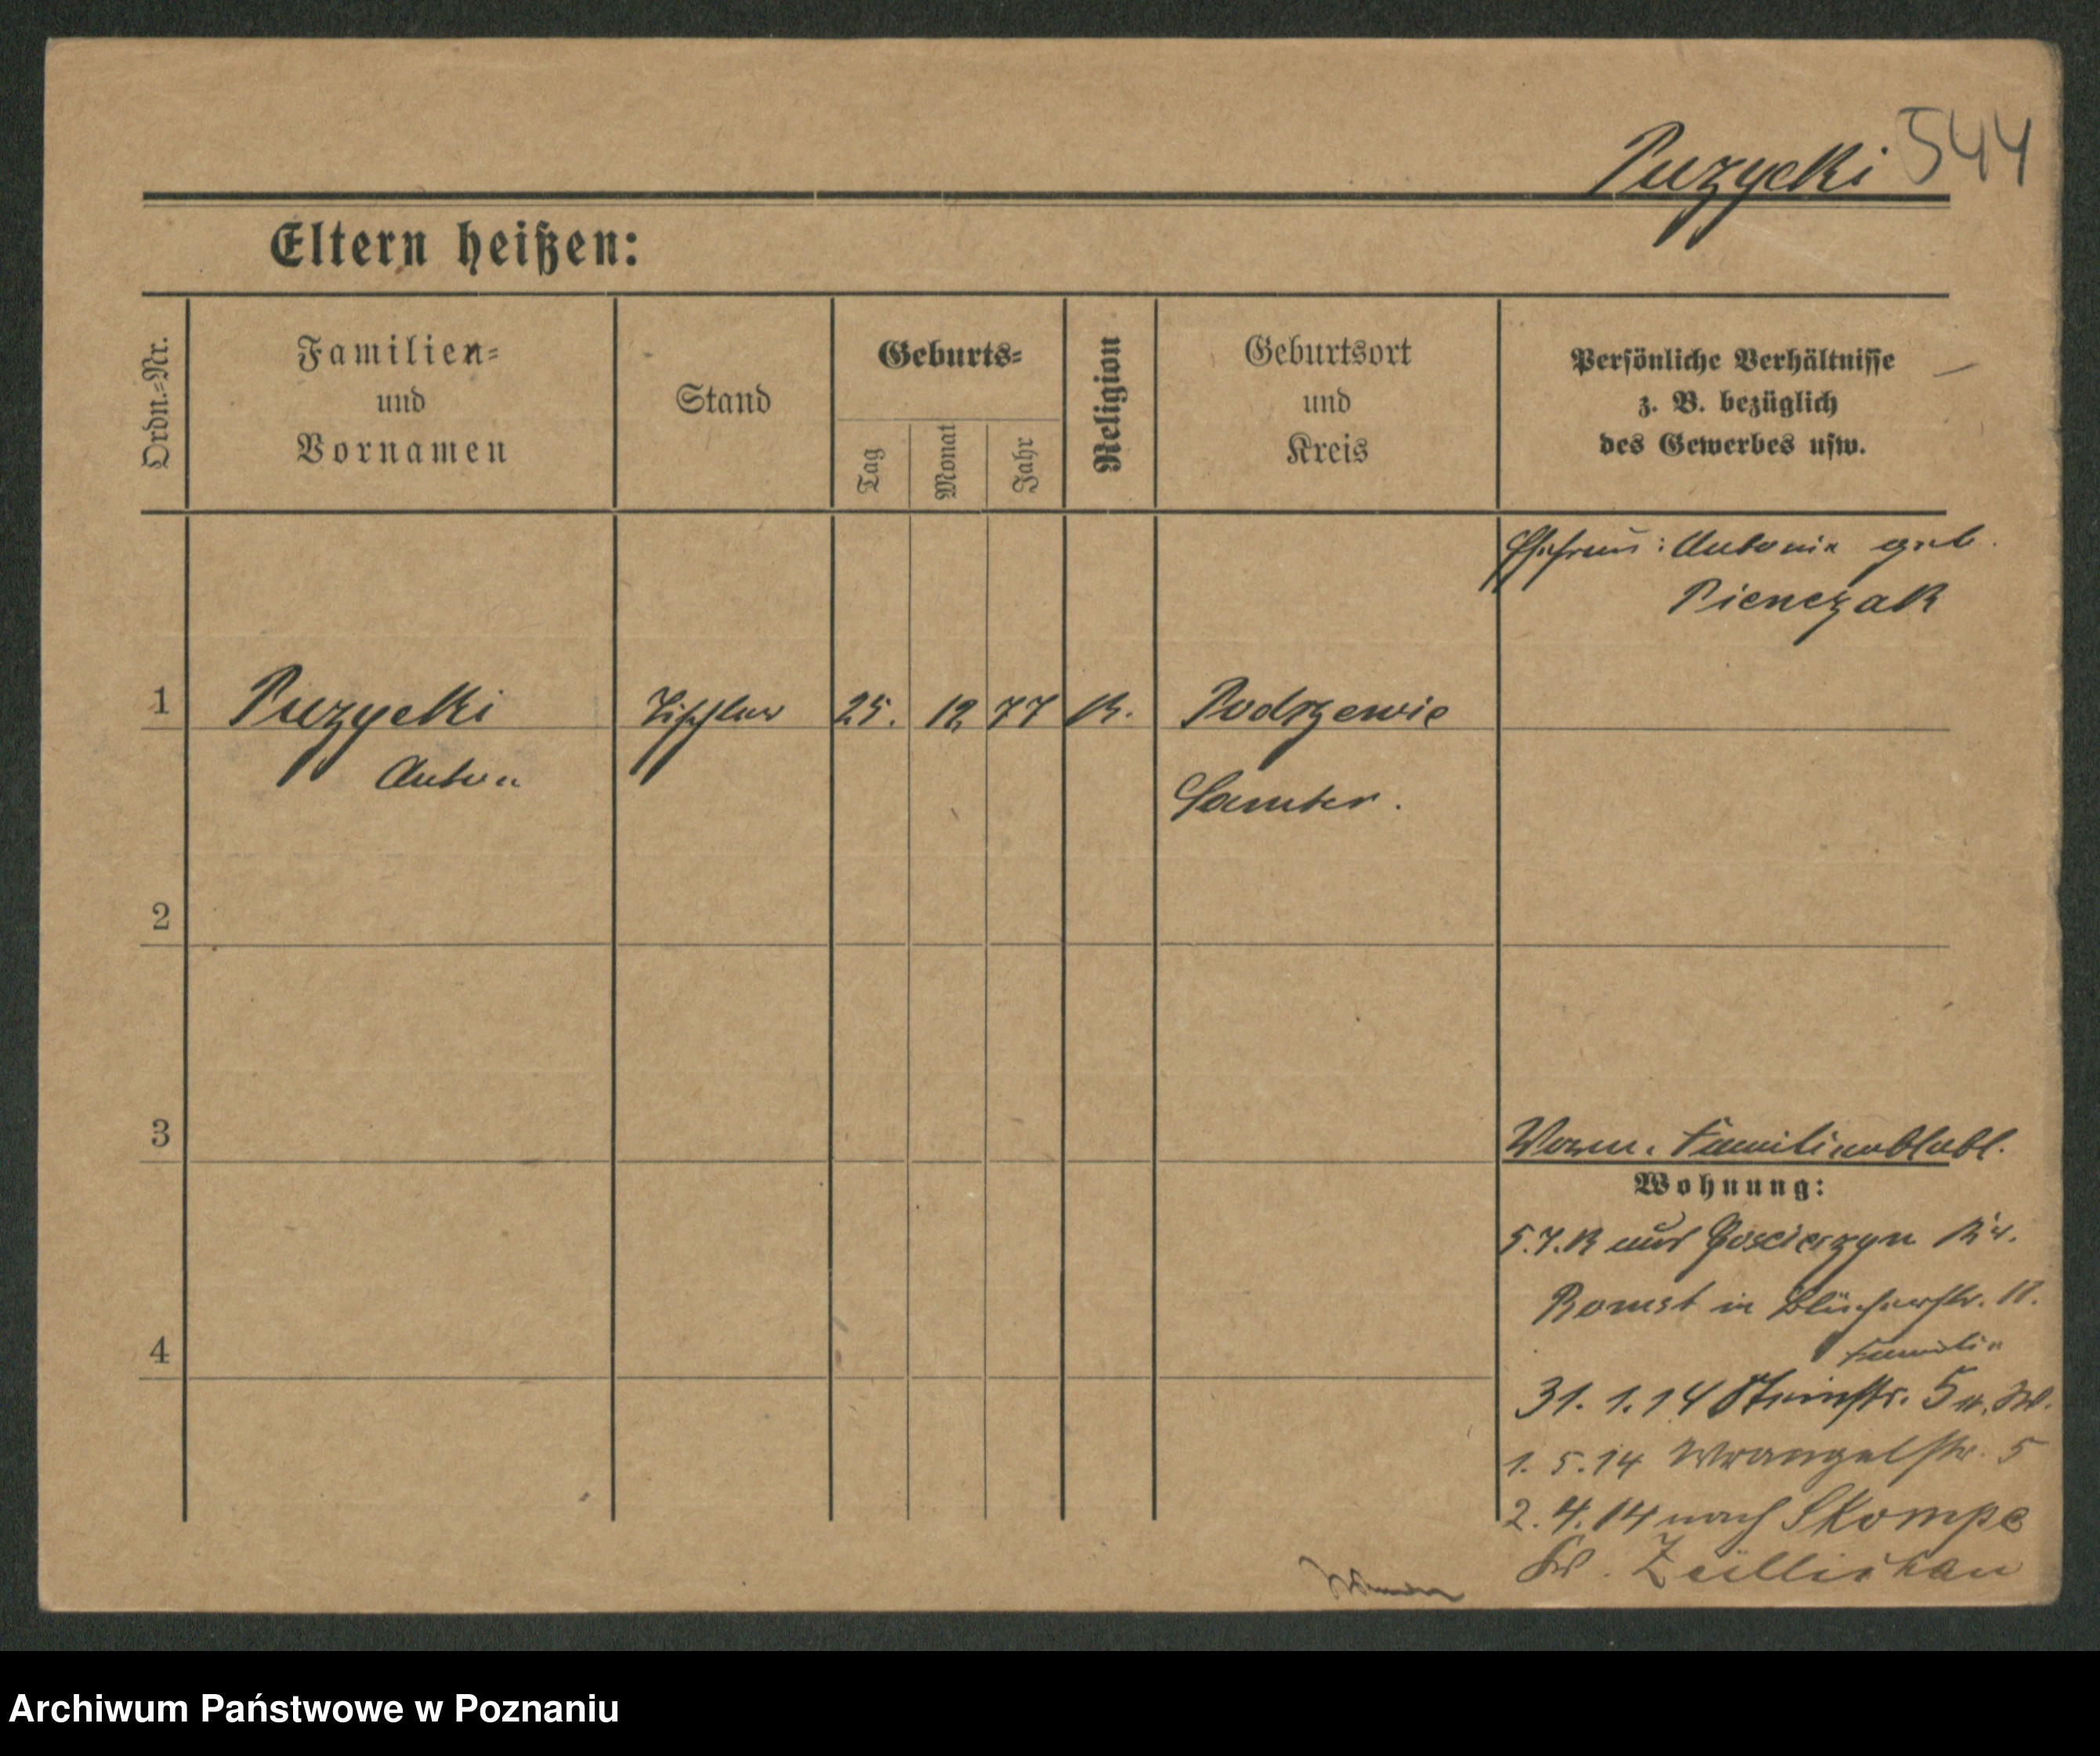 Puzycki 544
Eltern heißen:
Ordn.-Nr.
Familien-
und
Vornamen
Stand
Geburts-
Tag
Monat
Jahr
Religion
Geburtsort
und
Kreis
Persönliche Verhältnisse
z. B. bezüglich
des Gewerbes usw.
Ehefrau: Antonie geb.
Pienczak
1 Puzycki Tischler 25. 12 77 K. Podrzewie
Anton Samter.
2
3
Familienblatt.
Wohnung:
aus Goscieszyn Kr.
Bomst in Blücherstr. 11.
Familie
4
31. 1. 14 Steinstr. 5
1. 5. 14 Wrangelstr. 5
2. 4. 14 nach Skampe
Kr. Züllichau
Archiwum Państwowe w Poznaniu